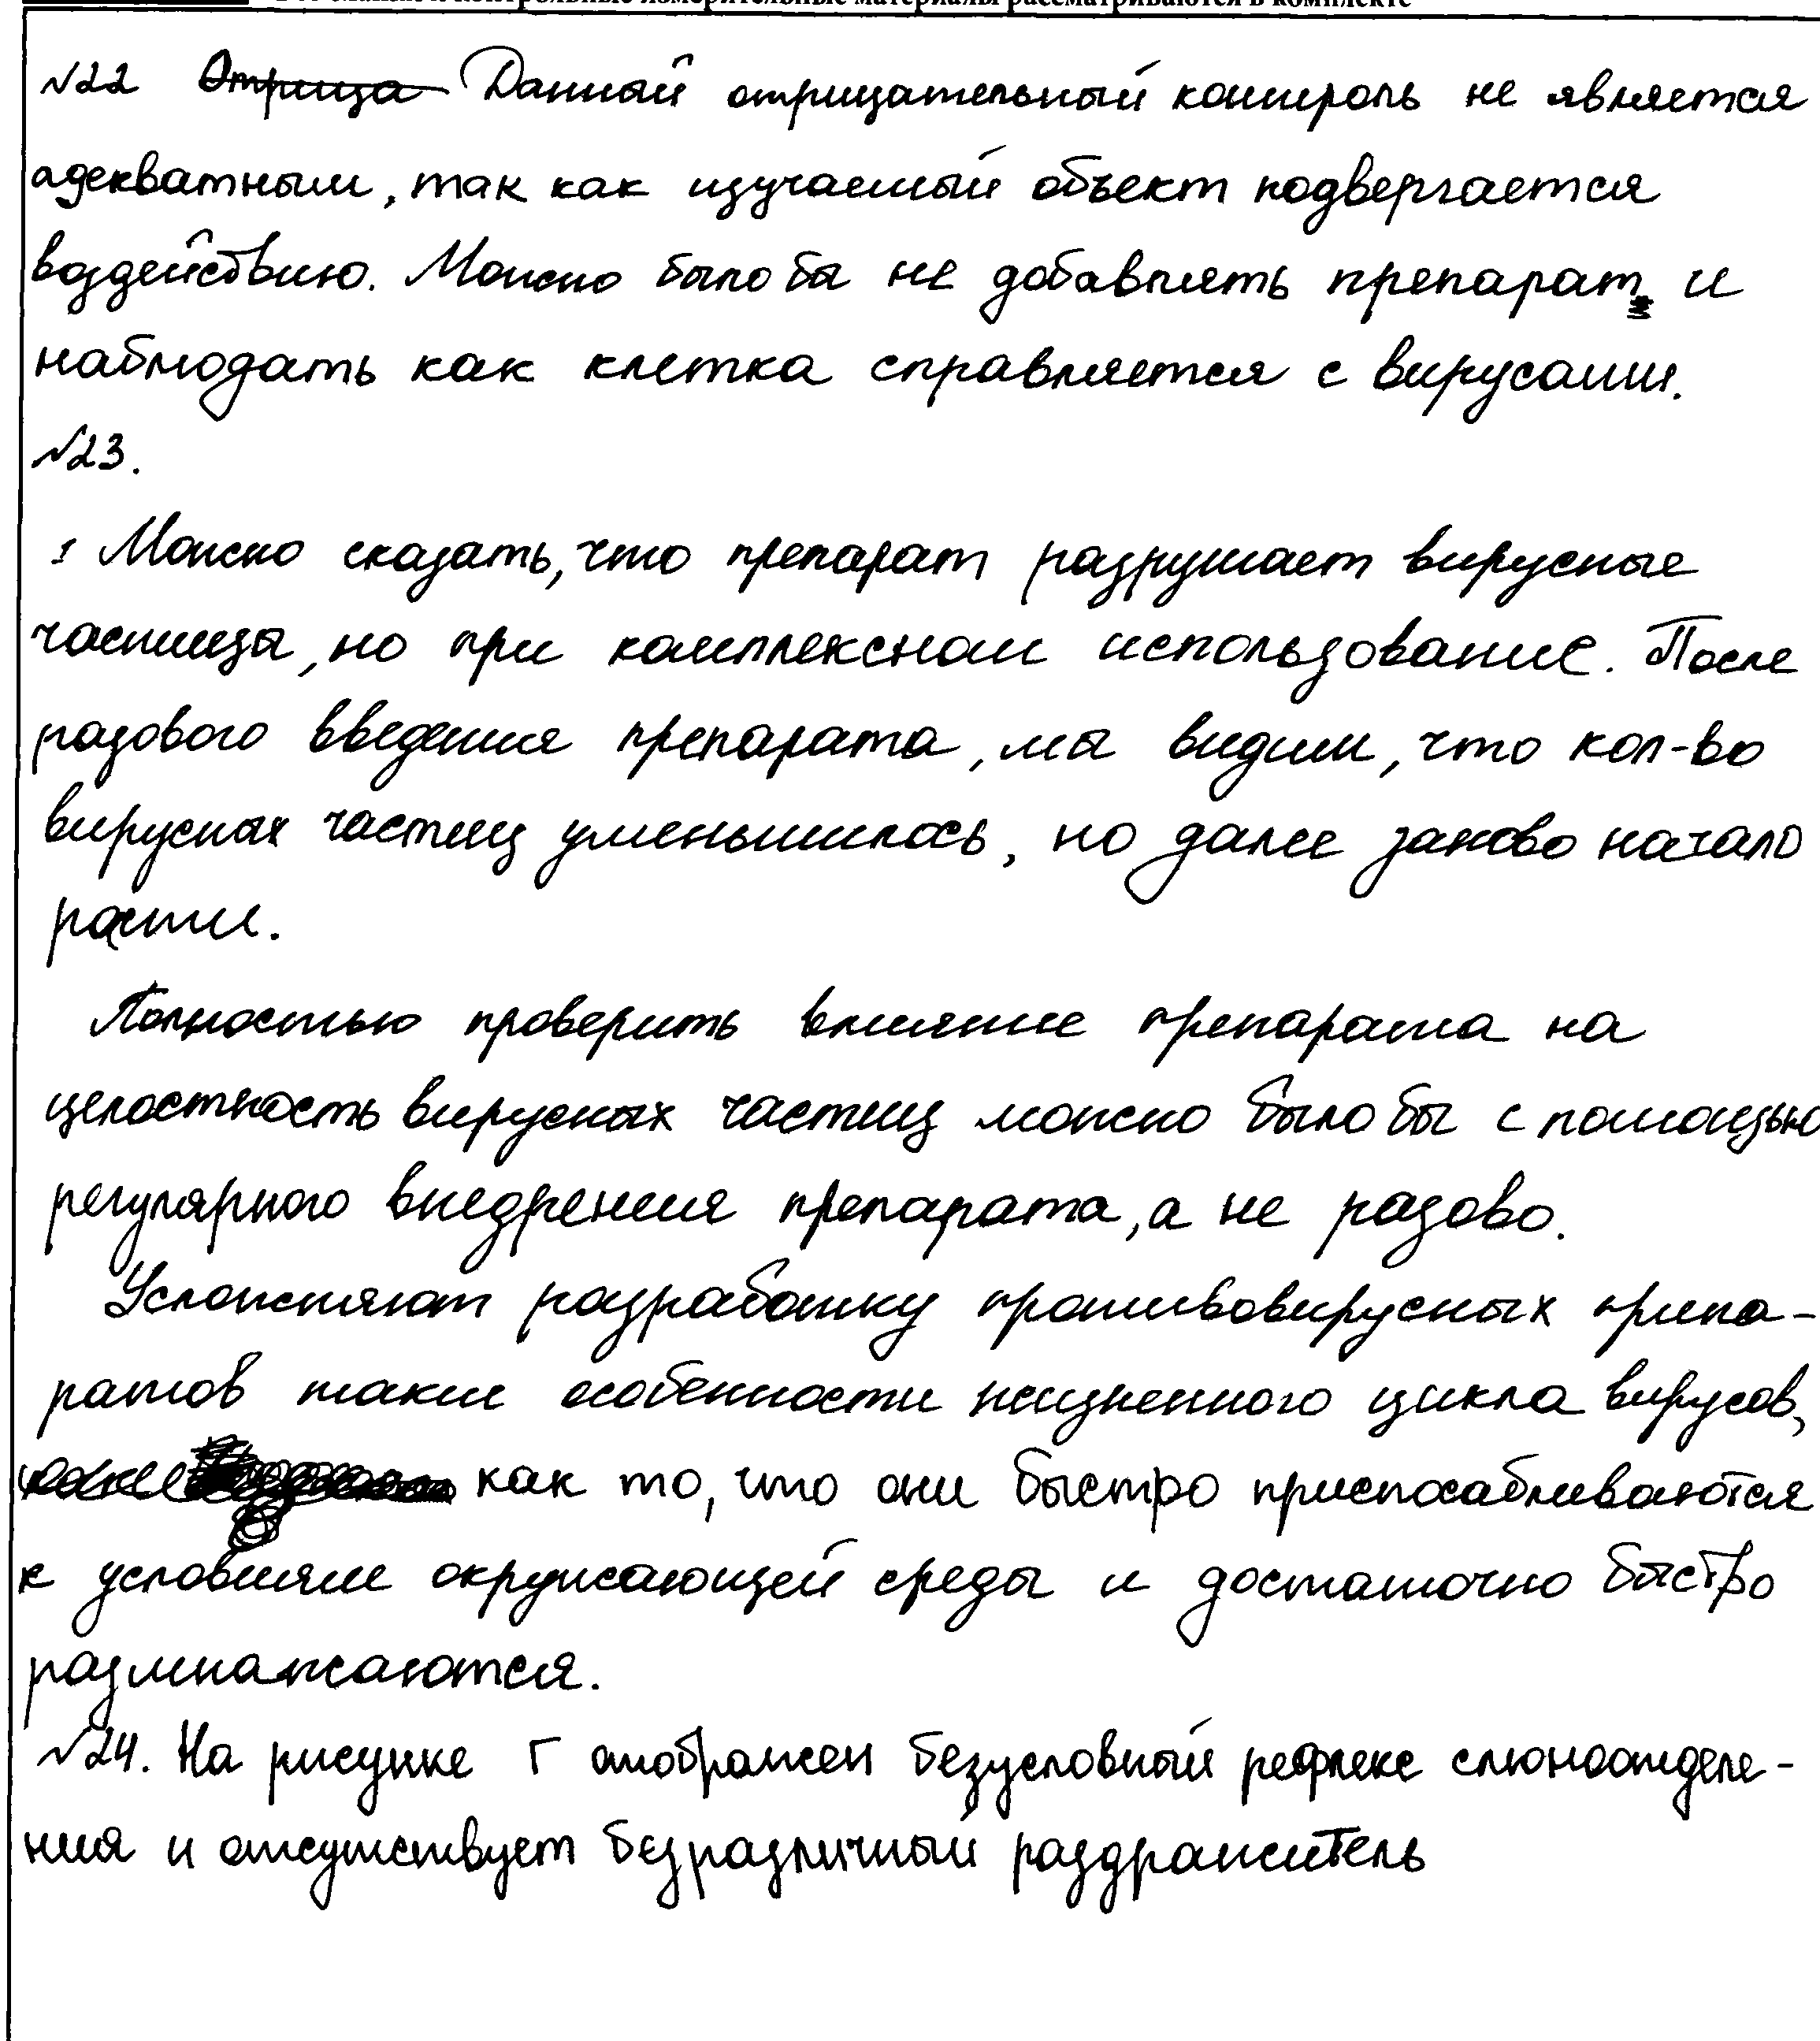 №22 Отрица Данный отрицательный контроль не является
адекватным, так как изучаемый объект подвергается
воздействию. Можно было бы не добавлять препарат и
наблюдать как клетка справляется с вирусами.
№23.
1 Можно сказать, что препарат разрушает вирусные
частицы, но при комплексном использование. После
разового введения препарата, мы видим, что кол-во
вирусных частиц уменьшилось, но далее заново начало
расти.
Полностью проверить влияние препарата на
целостность вирусных частиц можно было бы с помощью
регулярного внедрения препарата, а не разово.
Усложняют разработку противовирусных припа-
ратов такие особенности жизненного цикла вирусов,
как то, что они быстро приспосабливаются
к условиям окружающей среды и достаточно быстро
размножаются.
№24. На рисунке Г отображен безусловный рефлекс слюноотделе-
ния и отсутствует безразличный раздражитель